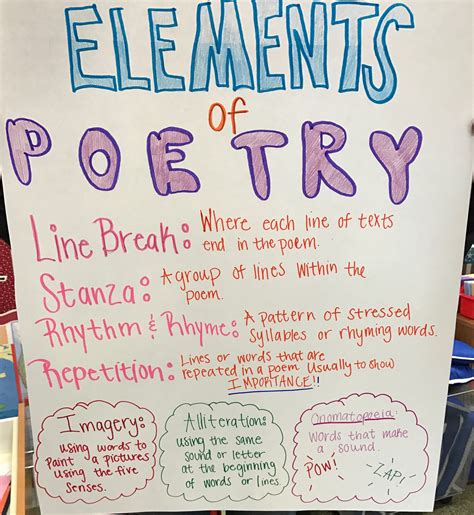 ELEMENTS
of
POETRY
Line Break: Where each line of texts
end in the poem.
Stanza: A group of lines within the
poem.
Rhythm & Rhyme: A pattern of stressed
Syllables or rhyming words.
Repetition: Lines or words that are
repeated in a poem Usually to show
IMPORTANCE!!
Imagery:
using words to
Paint a pictures
using the five
senses.
Alliteration:
using the same
sound or letter
at the beginning
of words or lines.
Onomatopoeia:
Words that make
a sound.
POW!
ZAP!